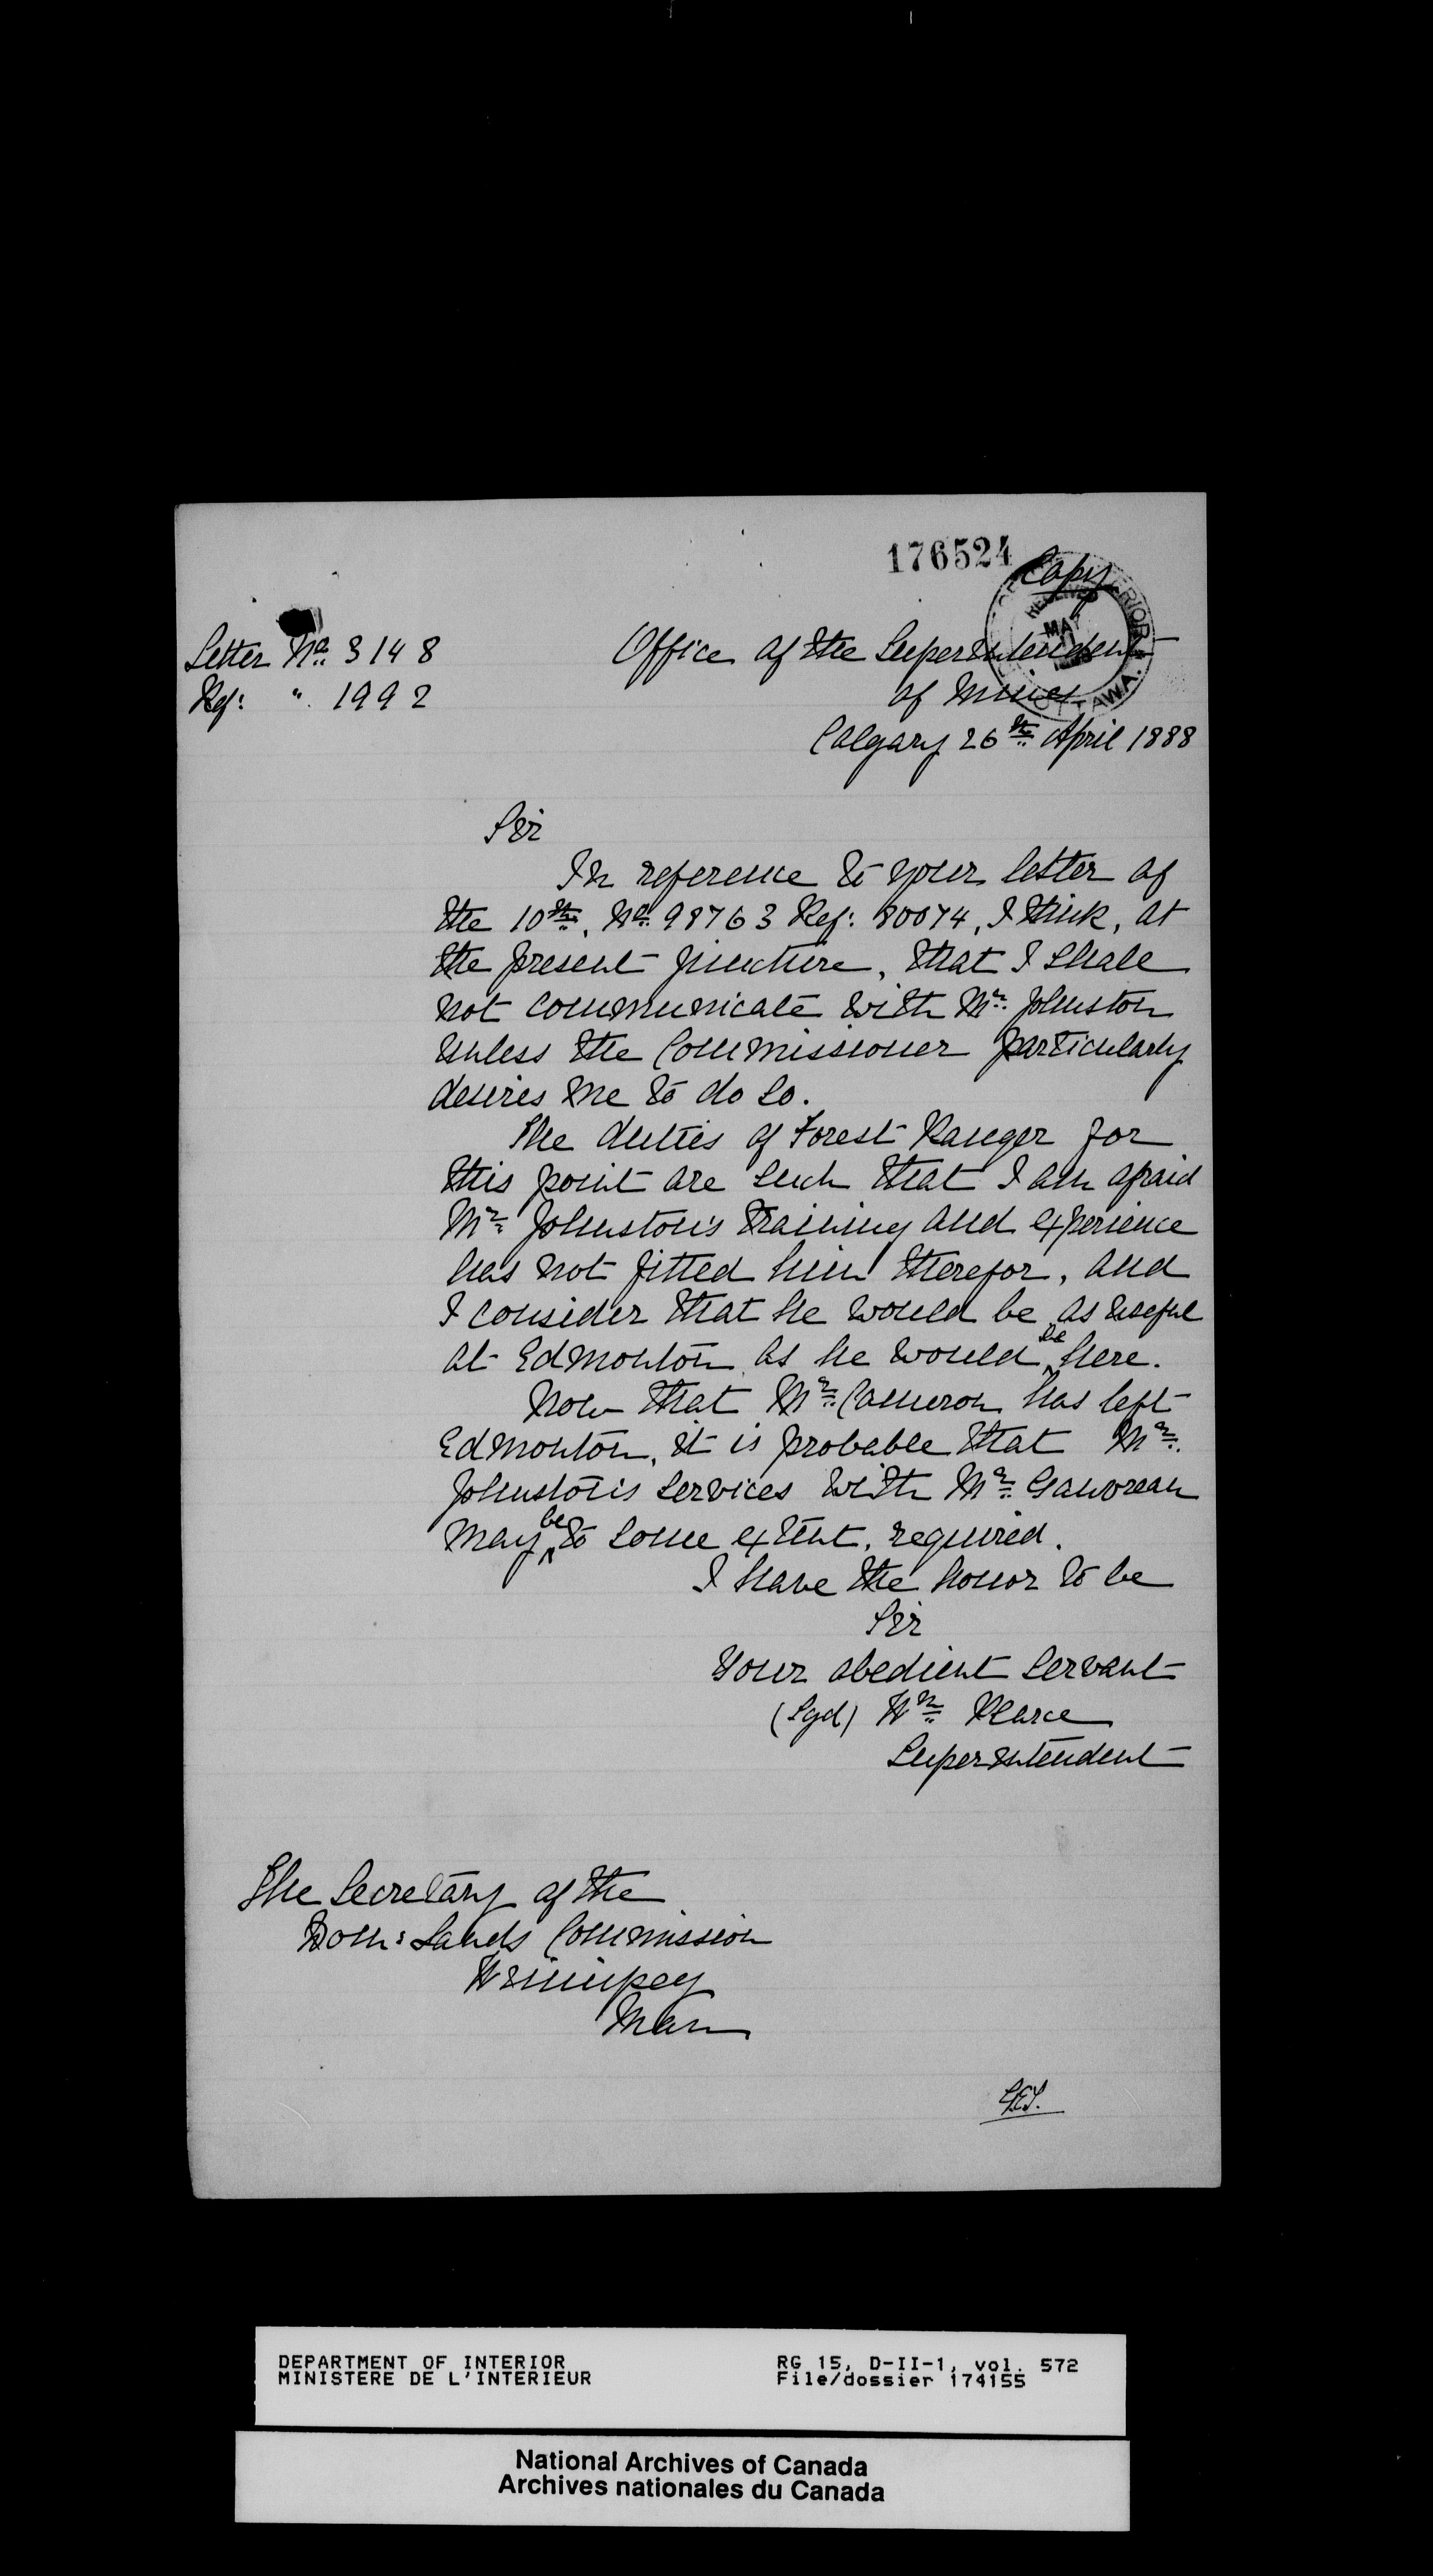 176524
Copy
RECEIVED
MAY
OTTAWA.
Letter No. 3148
Ref: " 1992
Office of the Superintendent
of Mines
Calgary 26th April 1888
Sir
In reference to your letter of
the 10th, No. 98763 Ref: 80074, I think, at
the present juncture, that I shall
not communicate with Mr. Johnston
unless the Commissioner particularly
desires me to do so.
The duties of Forest Ranger for
this point are such that I am afraid
Mr. Johnston's training and experience
has not fitted him therefor, and
I consider that he would be as useful
at Edmonton as he would be here.
Now that Mr. Cameron has left
Edmonton, it is probable that Mr.
Johnston's services with Mr. Gauvreau
may be to some extent, required.
I have the honor to be
Sir
Your obedient servant
(Sgd) Wm. Pearce
Superintendent
The Secretary of the
Dom: Lands Commission
Winnipeg
Man
DEPARTMENT OF INTERIOR
MINISTERE DE L'INTERIEUR
RG 15, D-II-1, vol. 572
File/dossier 174155
National Archives of Canada
Archives nationales du Canada